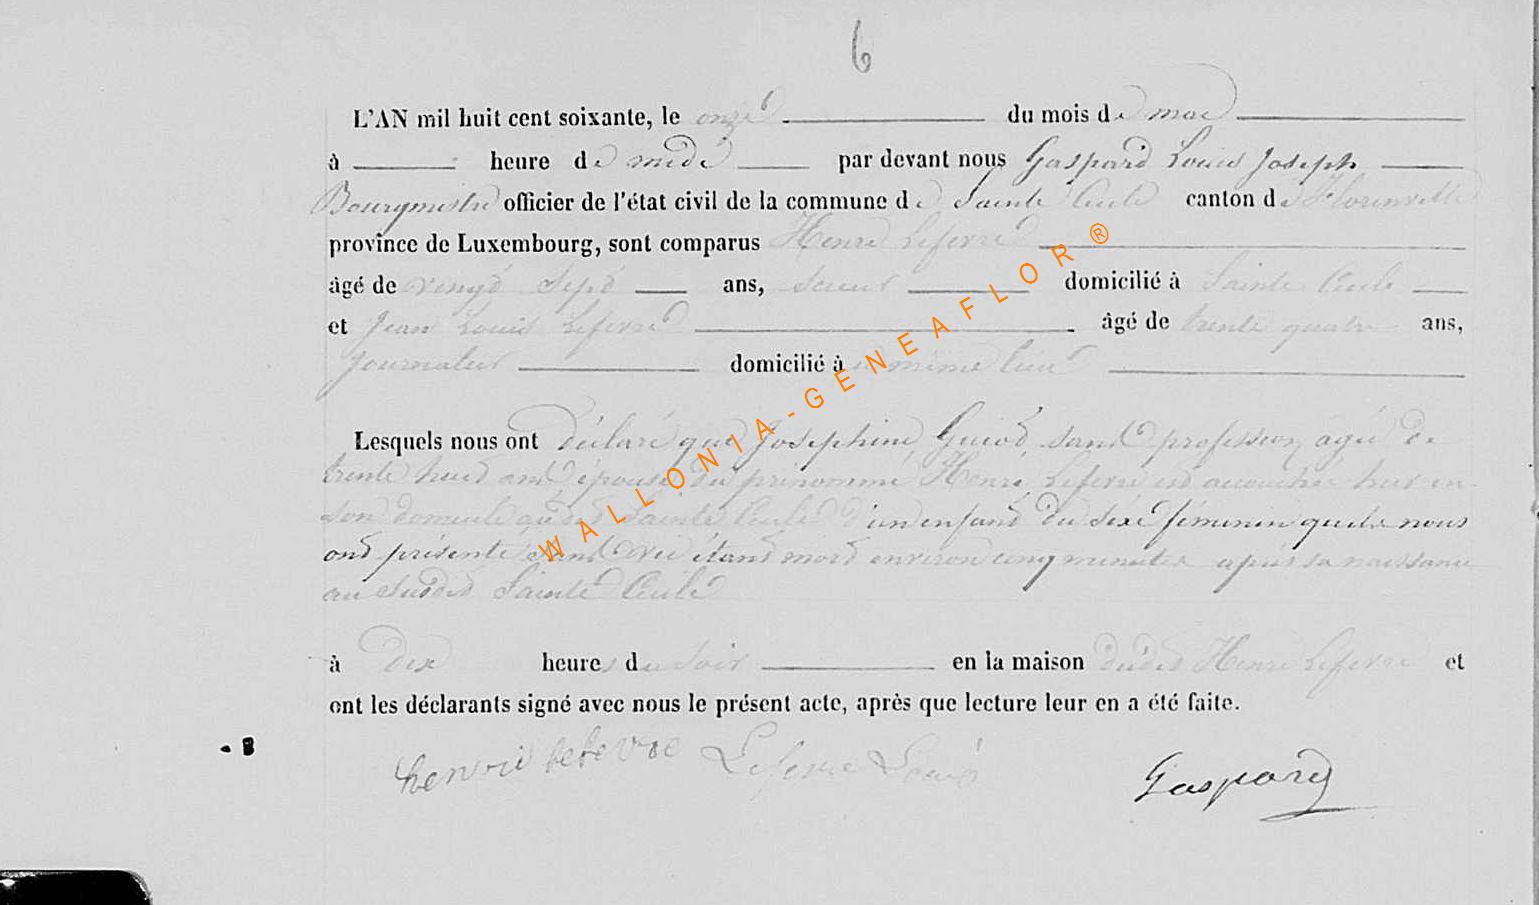 6
L'AN mil huit cent soixante, le onze du mois de mai
à heure de midi par devant nous Gaspard Louis Joseph
Bourgmestre officier de l'état civil de la commune de Sainte Cécile canton de Florenville
province de Luxembourg, sont comparus Henri Lefevre
âgé de vingt sept ans, domicilié à Sainte Cécile
et Jean Louis Lefevre âgé de trente quatre ans,
Journalier domicilié à même lieu
Lesquels nous ont déclaré que Josephine Guiot, sans profession, agée de
trente huit ans épouse du prénommé Henri Lefevre est accouchée hier en
son domicile au dit Sainte Cécile d'un enfant du sexe féminin qu'ils nous
ont présenté sans vie étant mort environ cinq minutes après sa naissance
au susdit Sainte Cécile
à dix heures du soir en la maison dudit Henri Lefevre et
ont les déclarants signé avec nous le présent acte, après que lecture leur en a été faite.
henri lefevre Lefevre Louis Gaspard
WALLONIA-GENEAFLOR®